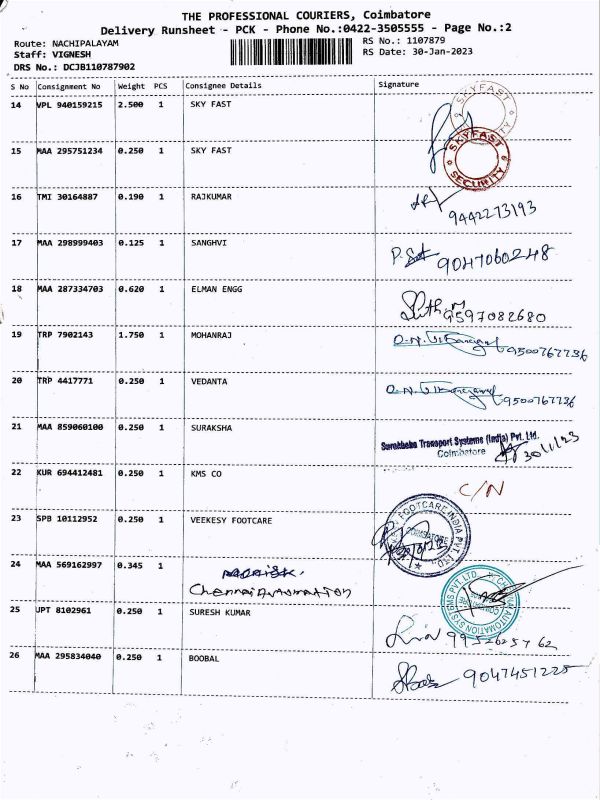 THE PROFESSIONAL COURIERS, Coimbatore
Delivery Runsheet - PCK - Phone No.:0422-3505555 - Page No.:2
Route: NACHIPALAYAM
Staff: VIGNESH
DRS No.: DCJB110787902
RS No.: 1107879
RS Date: 30-Jan-2023
S No Consignment No Weight PCS Consignee Details Signature
14 VPL 940159215 2.500 1 SKY FAST
SKYFAST
15 MAA 295751234 0.250 1 SKY FAST
SKYFAST SECURITY
16 TMI 30164887 0.190 1 RAJKUMAR
9442273193
17 MAA 298999403 0.125 1 SANGHVI
9047060248
18 MAA 287334703 0.620 1 ELMAN ENGG
9597082680
19 TRP 7902143 1.750 1 MOHANRAJ
9500767736
20 TRP 4417771 0.250 1 VEDANTA
9500767736
21 MAA 859060100 0.250 1 SURAKSHA
Transport Systems (India) Pvt. Ltd.
Coimbatore 30/1/23
22 KUR 694412481 0.250 1 KMS CO C/N
23 SPB 10112952 0.250 1 VEEKESY FOOTCARE
FOOTCARE INDIA PVT. LTD. COIMBATORE
24 MAA 569162997 0.345 1
Chennai Automation
AUTOMATION SYSTEMS PVT LTD
25 UPT 8102961 0.250 1 SURESH KUMAR
26 MAA 295834040 0.250 1 BOOBAL
9047451225